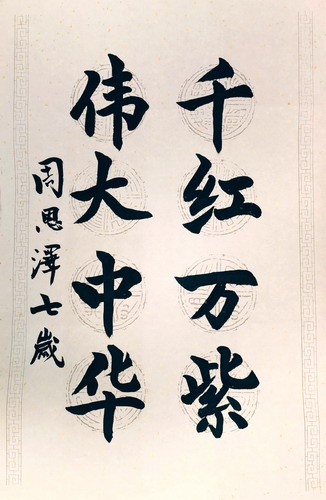 千红万紫
伟大中华
周思泽七岁